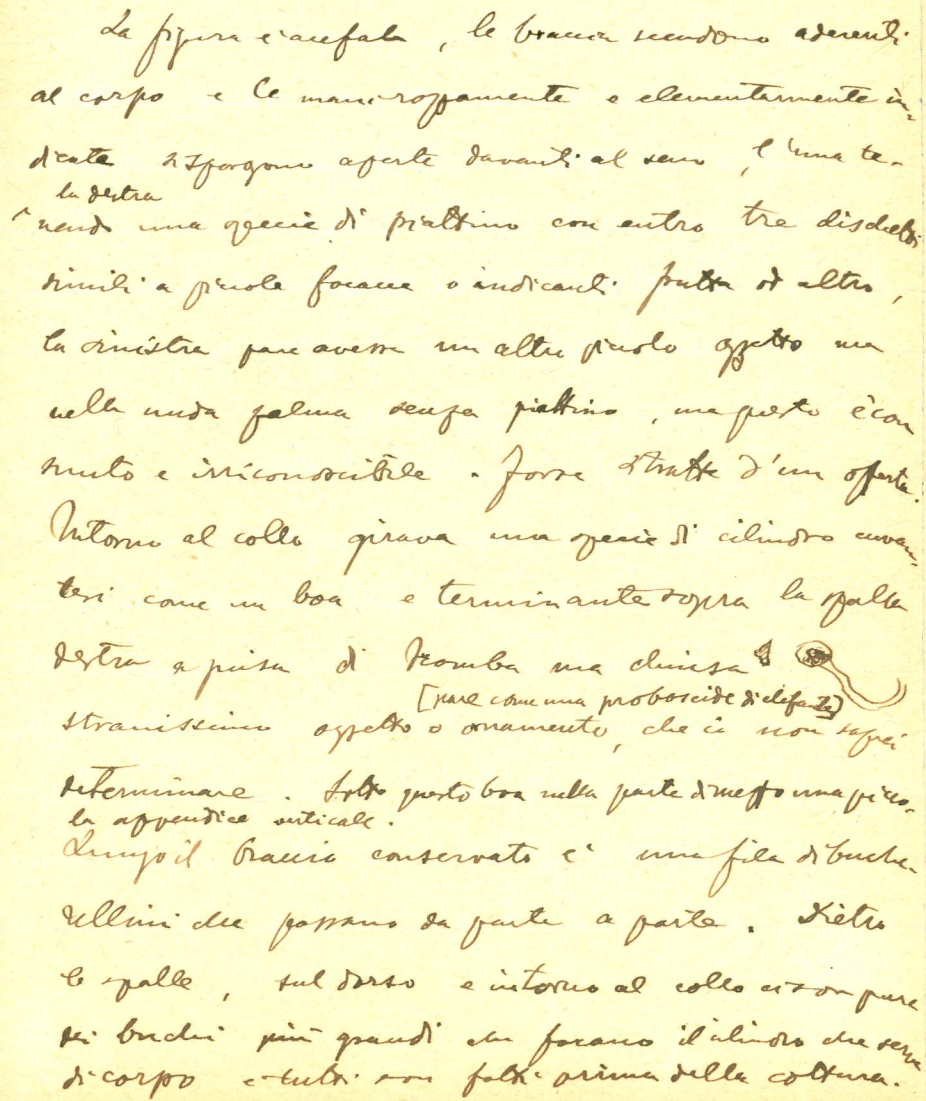 La figura è acefala, le braccia scendono aderenti
al corpo e le mani rozzamente e elementarmente in-
dicate si sporgono aperte davanti al seno, l'una te-
la destra
nendo una specie di piattino con entro tre dischetti
simili a piccole focacce o indicanti frutta od altro,
la sinistra pare avesse un altro piccolo oggetto ma
nella nuda palma senza piattino, ma questo è con
sunto e irriconoscibile. Forse si tratta d'un offerta.
Intorno al collo girava una specie di cilindro
come un boa e terminante sopra la spalla
destra a guisa di tromba ma chiusa
[pare come una proboscide di elefante]
stranissimo oggetto o ornamento, che io non saprei
determinare. Sotto questo boa nella parte di mezzo una picco-
la appendice verticale.
Lungo il braccio conservato è una fila di buche-
rellini che passano da parte a parte. Dietro
le spalle, sul dorso e intorno al collo ci son pure
dei buchi più grandi che forano il cilindro che serve
di corpo e tutti son fatti prima della cottura.